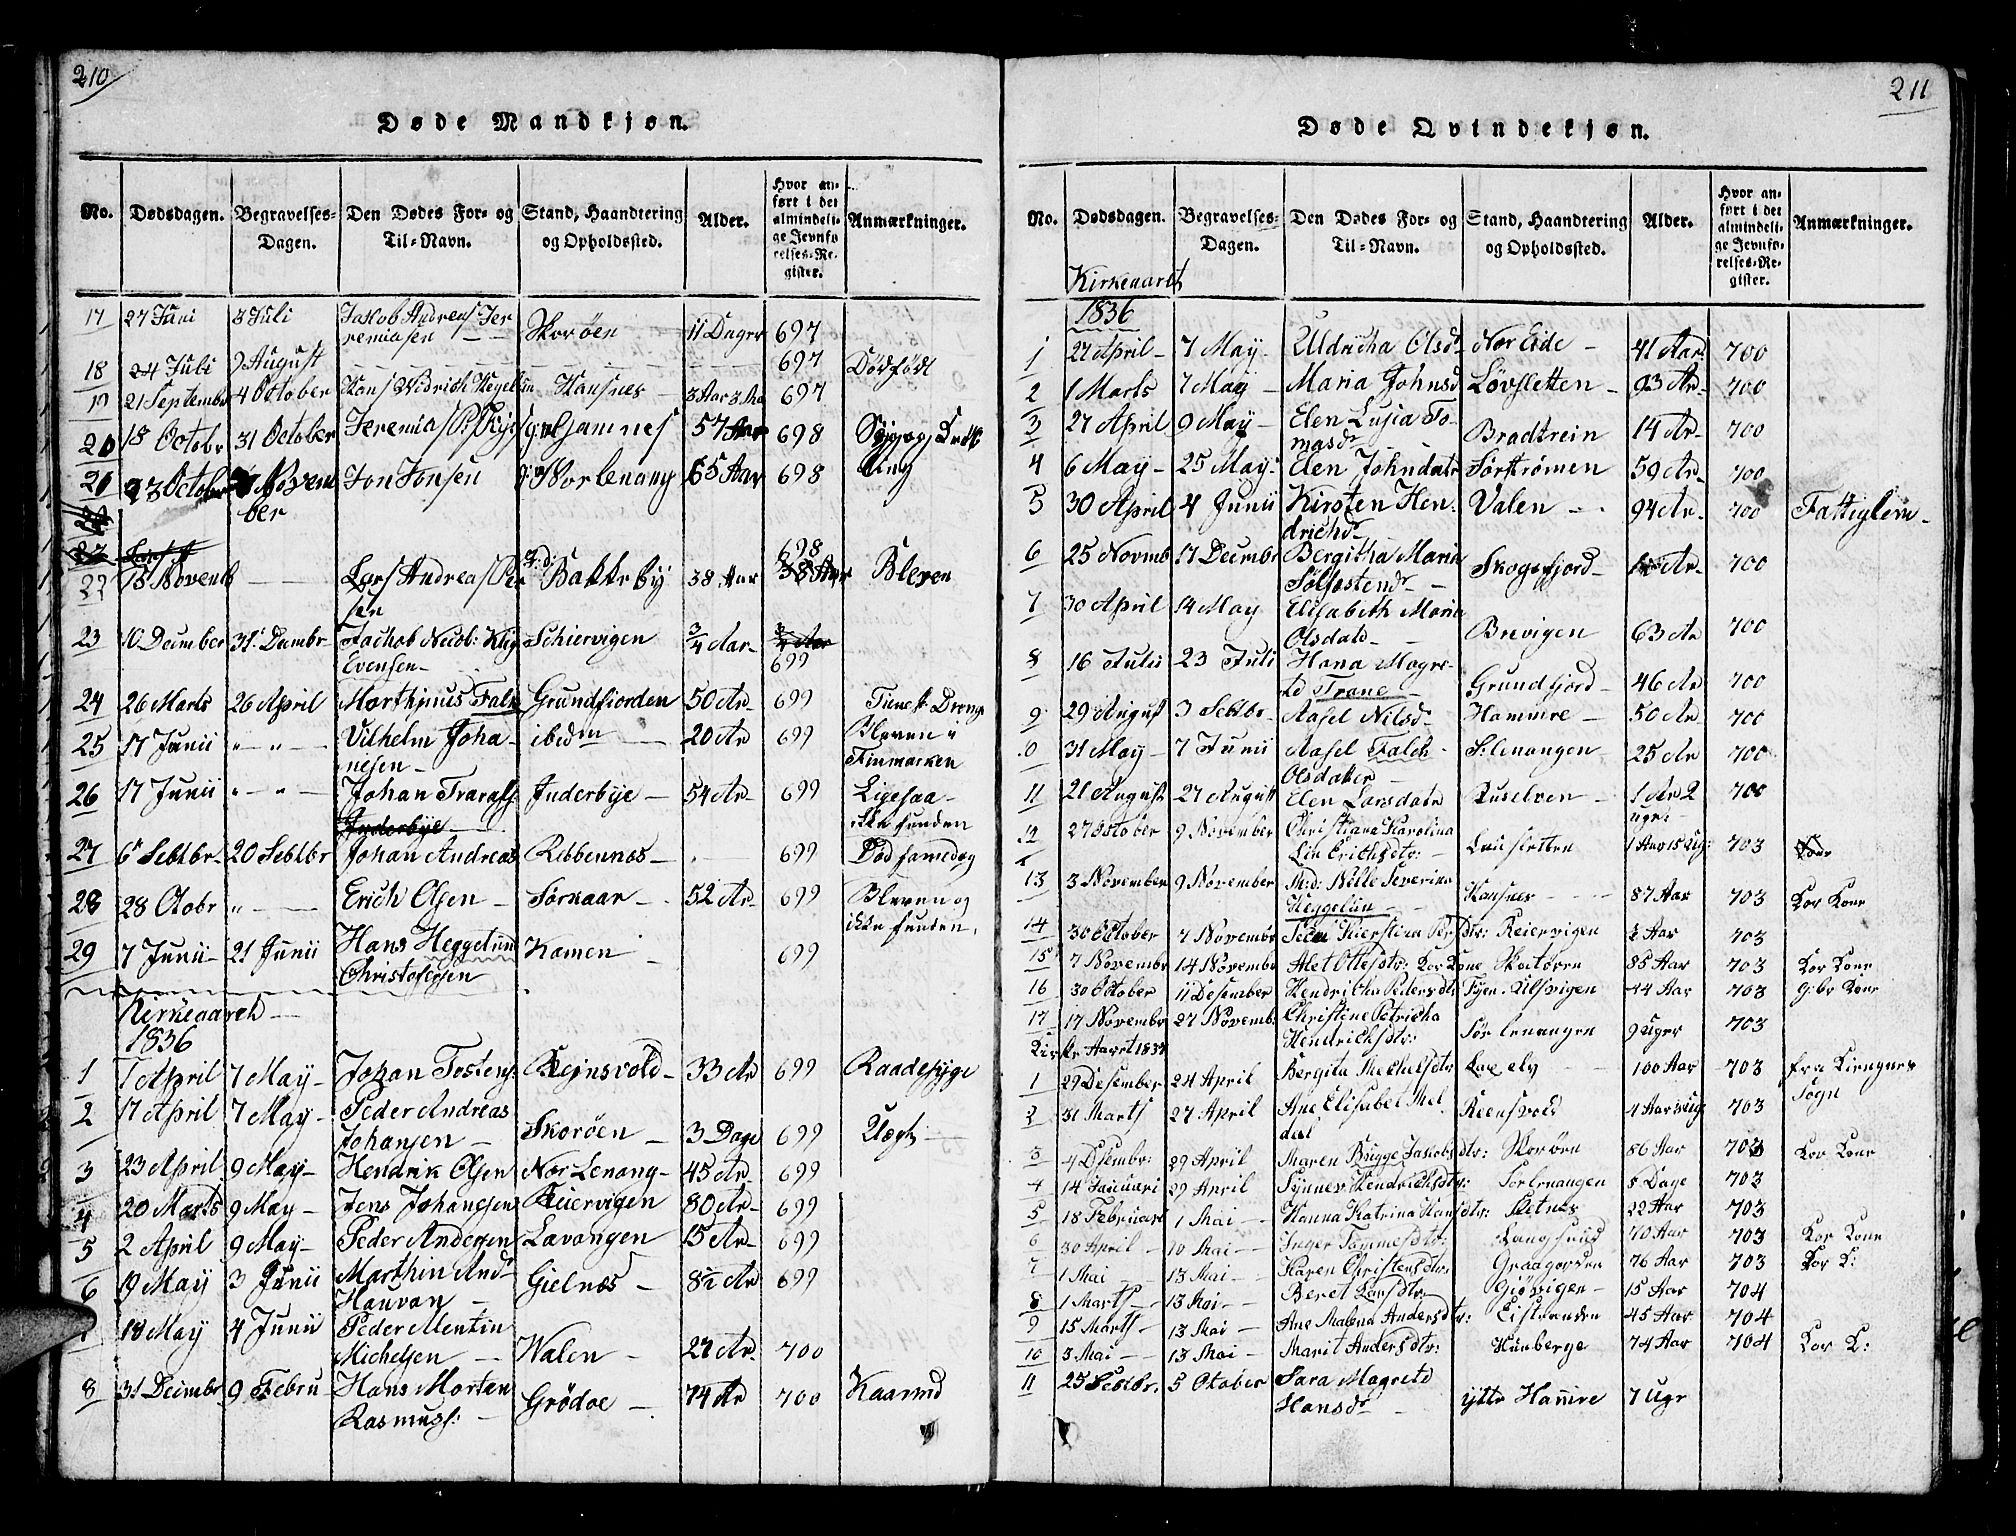 210
Døde Mandkjøn.
No. Dødsdagen. Begravelses-Dagen. Den Dødes For- og Til-Navn. Stand, Haandtering og Opholdssted. Alder. Hvor anført i det almindelige Jevnførelses-Register. Anmærkninger.
17 27 Juni 3 Juli Jakob Andreas Jeremiasen Skorøen 11 Dager 697
18 24 Juli 9 August 697 Dødfødt
19 21 September 4 October Hans Hansnes 3 Aar 697
20 18 October 31 October Jeremias 57 Aar 698
21 23 October November Jon Jonsen Norlenang 65 Aar 698
22 18 Novemb Lars Andreas Persen Bakkeby 38 Aar 698 Bleven
23 10 December 31 Decembr Evensen Schiervigen 3/4 Aar 699
24 26 Marts 26 April Marthinus Falk Grundfiorden 50 Ar 699
25 17 Junii " " Vilhelm Johanesen ibidem 20 Ar 699 Bleven i Finmarken
26 17 Junii " " Johan Inderbye 54 Ar 699 Ligesaa ikke funden
27 6 Septbr 20 Sebtbr Johan Andreas Ribbennæs 699 Død samedag
28 28 Octobr " Erich Olsen Sørkaar 52 Ar 699 Bleven og ikke funden
29 7 Junii 21 Junii Hans Heggelund Christofersen Kamen 699
Kirkeaaret
1836
1 1 April 7 May Johan Tostens Reinsvold 33 Ar 699 Raadesyge
2 17 April 7 May Peder Andreas Johansen Skorøen 3 Dage 699
3 23 April 9 May Hendrik Olsen Nor Lenang 45 Ar 699
4 20 Marts 9 May Jens Johansen Reiervigen 80 Ar 699
5 2 April 9 May Peder Andersen Lavangen 15 Ar 699
6 19 May 3 Junii Marthen And Hauvan Gielnæs 8 1/2 Ar 699
7 18 May 4 Junii Peder Mentin Michelsen Walen 27 Ar 700
8 31 Decimbr 9 Febru Hans Morten Rasmuss: Grødoe 74 Ar 700
211
Døde Qvindekjøn.
No. Dødsdagen. Begravelses-Dagen. Den Dødes For- og Til-Navn. Stand, Haandtering og Opholdssted. Alder. Hvor anført i det almindelige Jevnførelses-Register. Anmærkninger.
Kirkeaaret
1836
1 27 April 7 May Uldricha Olsdr Nor Eide 41 Aar 700
2 1 Marts 7 May Maria Johnsd Løvsletten 93 Ar 700
3 27 April 9 May Elen Lusia Tomasdr Bradtrein 14 Ar 700
4 6 May 25 May Elen Johndatr Sørstrømen 59 Ar 700
5 30 April 4 Junii Kirsten Hendrichdr Valen 94 Ar 700 Fattiglem
6 25 Novmb 17 Decmbr Bergitha Maria Skogsfjord Ar 700
7 30 April 14 May Elisabeth Maria Olsdatr Brevigen 63 Ar 700
8 16 Julii 23 Juli Hana Magreta Trane Grundfjord 46 Ar 700
9 29 August 3 Sebtbr Aasel Nilsd Hammre 50 Ar 700
10 31 May 7 Junii Aasel Falch Olsdatter S:lenangen 25 Ar 700
11 21 August 27 August Elen Larsdatr Russelven 1 Ar 2 uger 700
12 27 October 9 November Christiana Karolina Lin Erichsdtr: 1 Aar 15 Ug: 703
13 3 November 9 November Md: Bille Severina Heggelun Hansnes 87 Aar 703 Kor Kone
14 30 October 7 Novembr Kierstina Persdtr: Reiervigen 2 Aar 703
15 7 Novembr 14 Novembr Alet Ottesdtr: Kor Kone Skatøren 85 Aar 703 Kor Kone
16 30 October 11 Desember Hendricka Pedersdtr Tjen. Ulsvigen 44 Aar 703 Gbr Kone
17 17 Novembr 27 Novemb: Christine Petricha Hendrichsdtr: Sør lenangen 9 Uger 703
Kirke Aaret 1837
1 29 Desember 24 April Bergita Mechelsdtr 100 Aar 703 fra Kiengnes Sogn
2 31 Marts 27 April Ane Elisabet Meldal Reensvold 4 Aar 703
3 4 Desembr: 29 April Maren Brigge Jakobsdtr: Skorøen 86 Aar 703 Kor Kone
4 14 Januari 29 April Synnev Hendrichsdtr: Sorlenangen 8 Dage 703
5 18 Februari 1 Mai Hanna Katrina Hansdtr: Skitnes 22 Aar 703
6 30 April 10 Mai Inger Tommesdtr: Langsund 70 Aar 703 Kor Kone
7 1 Mai 13 Mai Karen Christensdtr: Graagorden 76 Aar 703 Kor K:
8 1 Marts 13 Mai Beret Larsdtr: Giøvigen 15 Aar 704
9 15 Marts 13 Mai Ane Malena Andersdtr: Eistranden 45 Aar 704
10 3 Mai 13 Mai Marit Andersdtr: Hunberge 74 Aar 704 Kor K:
11 25 Sebtbr. 5 Oktober Sara Magreta Hansdr ytre Hamre 7 Ugr